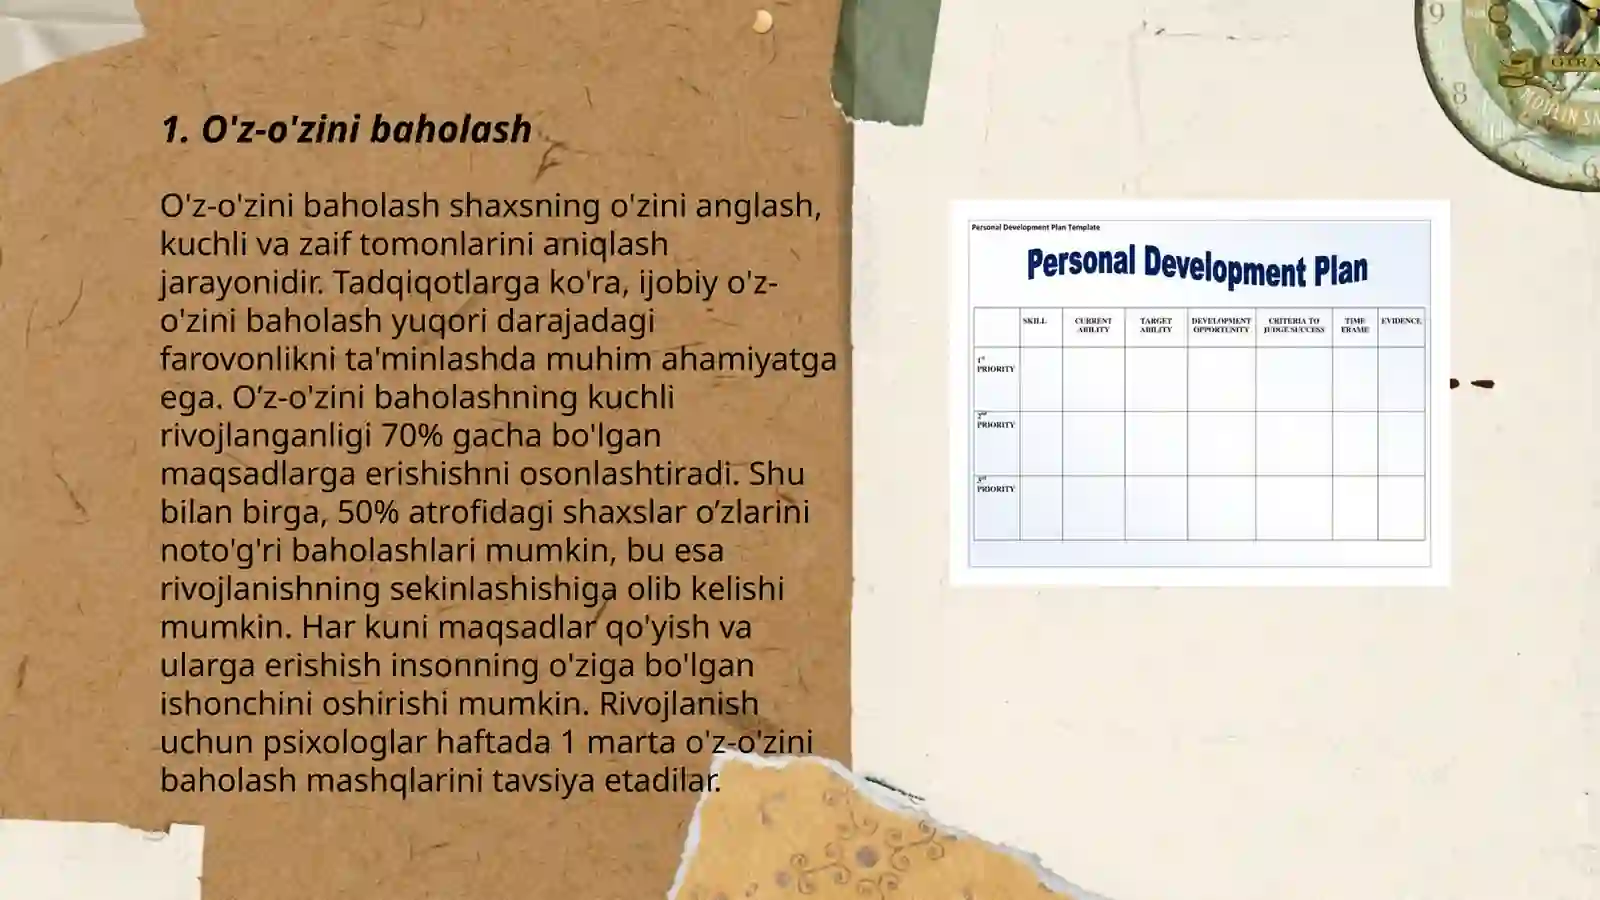 1. O'z-o'zini baholash
O'z-o'zini baholash shaxsning o'zini anglash,
kuchli va zaif tomonlarini aniqlash
jarayonidir. Tadqiqotlarga ko'ra, ijobiy o'z-
o'zini baholash yuqori darajadagi
farovonlikni ta'minlashda muhim ahamiyatga
ega. O’z-o'zini baholashning kuchli
rivojlanganligi 70% gacha bo'lgan
maqsadlarga erishishni osonlashtiradi. Shu
bilan birga, 50% atrofidagi shaxslar o’zlarini
noto'g'ri baholashlari mumkin, bu esa
rivojlanishning sekinlashishiga olib kelishi
mumkin. Har kuni maqsadlar qo'yish va
ularga erishish insonning o'ziga bo'lgan
ishonchini oshirishi mumkin. Rivojlanish
uchun psixologlar haftada 1 marta o'z-o'zini
baholash mashqlarini tavsiya etadilar.
Personal Development Plan Template
Personal Development Plan
SKILL CURRENT ABILITY TARGET ABILITY DEVELOPMENT OPPORTUNITY CRITERIA TO JUDGE SUCCESS TIME FRAME EVIDENCE
1st PRIORITY
2nd PRIORITY
3rd PRIORITY
9
8
6